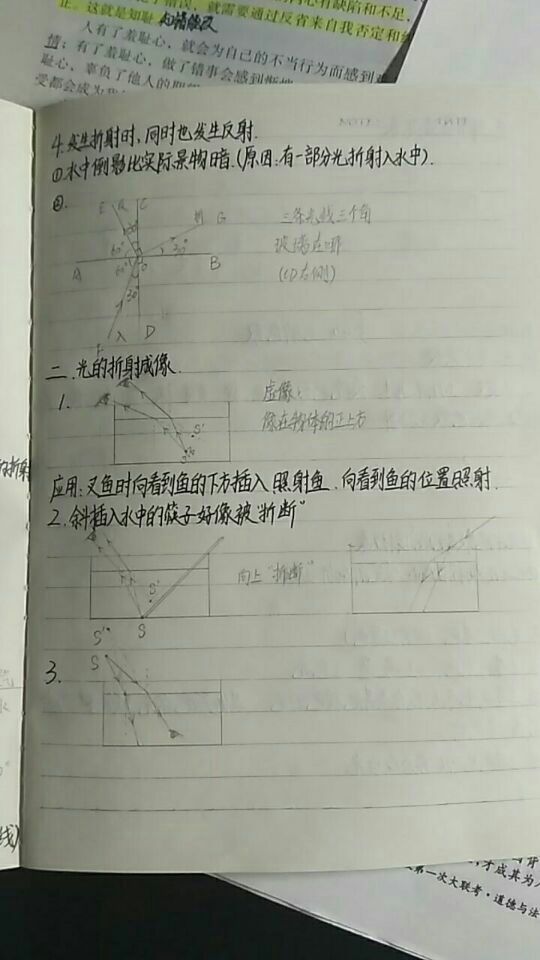 正。这就是知耻
知错能改
就需要通过反省来自我否定和
人有了羞耻心,就会为自己的不当行为而感到
有了羞耻心,做了错事会感到惭愧
耻心,辜负了他人的期
受都会成为我
4.发生折射时,同时也发生反射.
①水中倒影比实际景物暗.(原因:有一部分光折射入水中).
②.
E C
G
60° 30°
A O B
60°
30°
D
三条光线三个角
玻璃在哪
(CD右侧)
二.光的折射成像.
1.
S'
S
虚像:
像在物体的正上方
应用:叉鱼时向看到鱼的下方插入 照射鱼.向看到鱼的位置照射.
2.斜插入水中的筷子好像被"折断"
S'
S
向上"折断"
3.
S'
S
第一次大联考·道德与法